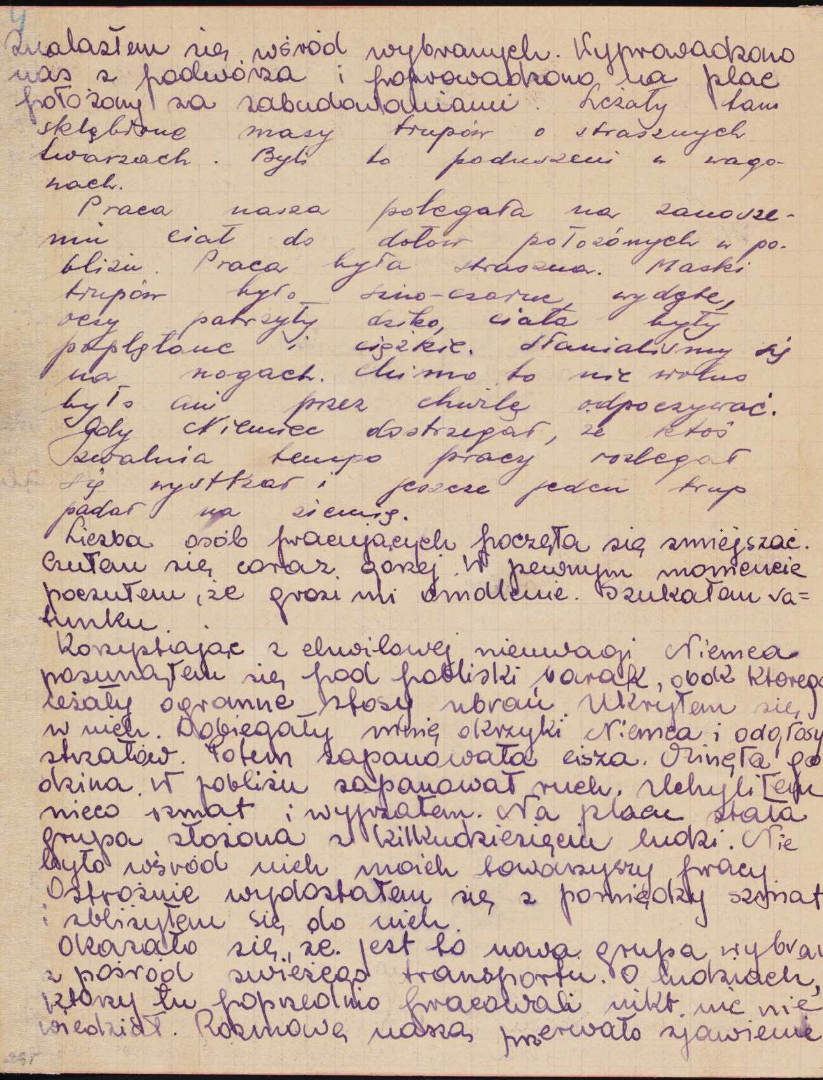 4
Znalazłem się wśród wybranych. Wyprowadzono
nas z podwórza i poprowadzono na plac
położony za zabudowaniami. Leżały tam
skłębione masy trupów o strasznych
twarzach. Byli to poduszeni w wago-
nach.
Praca nasza polegała na zanosze-
niu ciał do dołów położonych w po-
bliżu. Praca była straszna. Maski
trupów były sino-czarne, wydęte,
oczy patrzyły dziko, ciała były
poplątane i ciężkie. Słanialiśmy się
na nogach. Mimo to nie wolno
było ani przez chwilę odpoczywać.
Gdy Niemiec dostrzegał, że ktoś
zwalnia tempo pracy rozlegał
się wystrzał i jeszcze jeden trup
padał na ziemię.
Liczba osób pracujących poczęła się zmiejszać.
Czułem się coraz gorzej. W pewnym momencie
poczułem, że grozi mi omdlenie. Szukałem ra=
tunku.
Korzystając z chwilowej nieuwagi Niemca
posunąłem się pod pobliski barak, obok którego
leżały ogromne stosy ubrań. Ukryłem się
w nich. Dobiegały mnię okrzyki Niemca i odgłosy
strzałów. Potem zapanowała cisza. Minęła go
dzina. W pobliżu zapanował ruch. Uchyliłem
nieco szmat i wyjrzałem. Na placu stała
grupa złożona z kilkudziesięciu ludzi. Nie
było wśród nich moich towarzyszy pracy.
Ostrożnie wydostałem się z pomiędzy szmat
i zbliżyłem się do nich.
Okazało się, że jest to nowa grupa wybran
z pośród świeżego transportu. O ludziach,
którzy tu poprzednio pracowali nikt nic nie
wiedział. Rozmowę naszą przerwało zjawienie